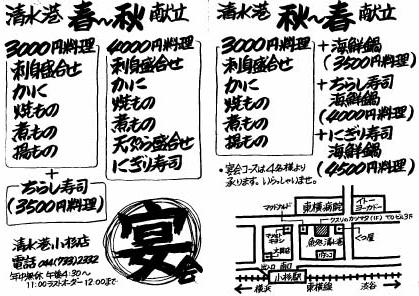 清水港 春~秋 献立
3000円料理
刺身盛合せ
かに
焼もの
煮もの
揚もの
+
ちらし寿司
(3500円料理)
4000円料理
刺身盛合せ
かに
焼もの
煮もの
天ぷら盛合せ
にぎり寿司
清水港 小杉店
電話 044(733)2332
年中無休 午後4:30~
11:00ラストオーダー 12:00まで
宴会
清水港 秋~春 献立
3000円料理
刺身盛合せ
かに
焼もの
煮もの
揚もの
+海鮮鍋
(3500円料理)
+ちらし寿司
海鮮鍋
(4000円料理)
+にぎり寿司
海鮮鍋
(4500円料理)
・宴会コースは4名様より
承ります。いらっしゃいませ。
マクドナルド
東横病院
イトー
ヨーカドー
くつ屋
出口 南口
小杉駅
横浜
東横線
渋谷